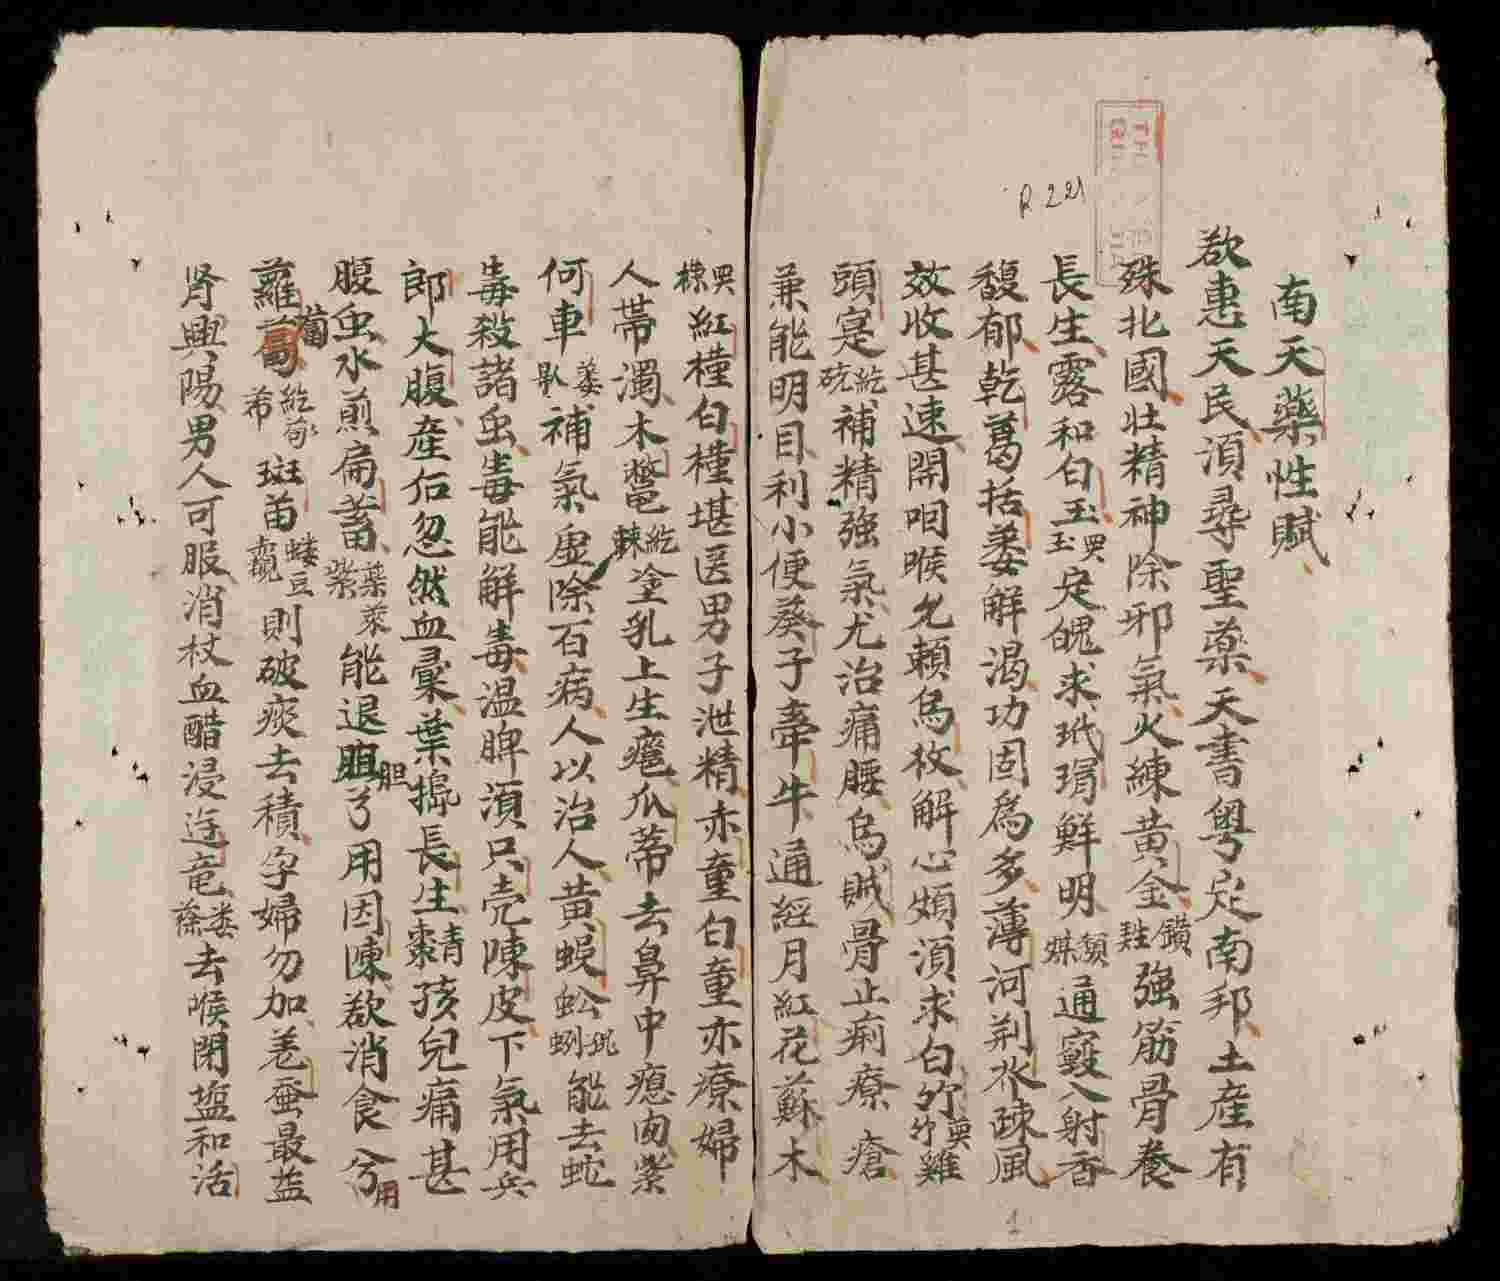 R.221
南天藥性賦
欲惠天民湏尋聖藥天書粤定南邦土産有
殊北國壯精神除邪氣火練黄金鑛強筋骨養
長生露和白玉玉定魄求玳瑁鮮明通竅入射香
馥郁乾葛括蒌解渴功固爲多薄河荆水疎風
效收甚速開咽喉允賴烏枚解心煩湏求白竹雞
頭寔補精強氣尤治痛腰烏賊骨止痢療瘡
兼能明目利小便葵子牽牛通經月紅花蘇木
紅槿白槿堪医男子泄精赤童白童亦療婦
人帶濁木鱉塗乳上生瘡瓜蒂去鼻中瘜肉紫
何車補氣虚除百病人以治人黄蜈蚣能去蛇
毒殺諸虫毒能解毒温脾湏只壳陳皮下氣用兵
郎大腹産后忽然血暈葉搗長生青孩兒痛甚
腹虫水煎扁蓄能退胆胆兮用因陳欲消食兮用
蘿蔔斑苗則破痰去積孕婦勿加恙蚕最益
肾興陽男人可服消杖血醋浸竜去喉閉塩和活
1